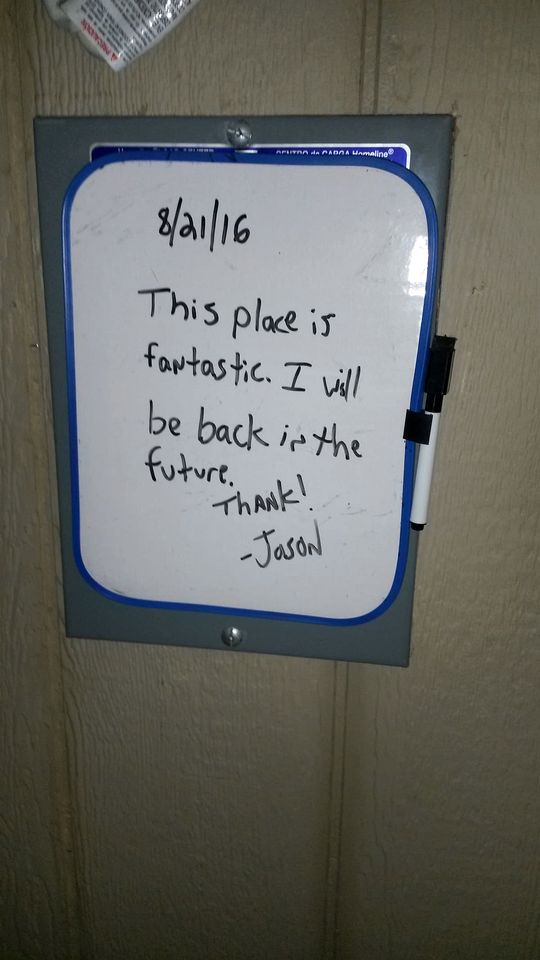 PRECAUCIÓN
CENTRO de CARGA Homeline®
8/21/16
This place is
fantastic. I will
be back in the
future.
THANK!
-JASON